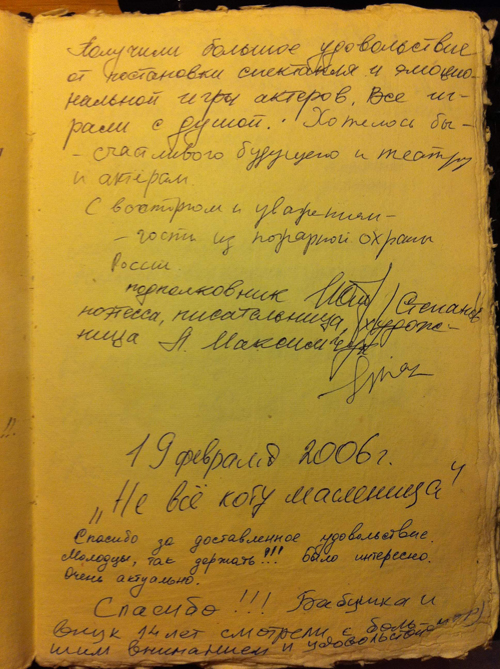 Получили большое удовольствие
от постановки спектакля и эмоцио-
нальной игры актеров. Все иг-
рали с душой. Хотелось бы -
- счастливого будущего и театру
и актёрам.
С восторгом и уважением -
- гости из пожарной охраны
России.
подполковник Степанов
поэтесса, писательница, худож-
ница А. Максимчук
19 февраля 2006г.
„Не всё коту масленица"
Спасибо за доставленное удовольствие.
Молодцы, так держать!!! было интересно.
Очень актуально.
Спасибо!!! Бабушка и
внук 14 лет смотрели с боль-
шим вниманием и удовольствием